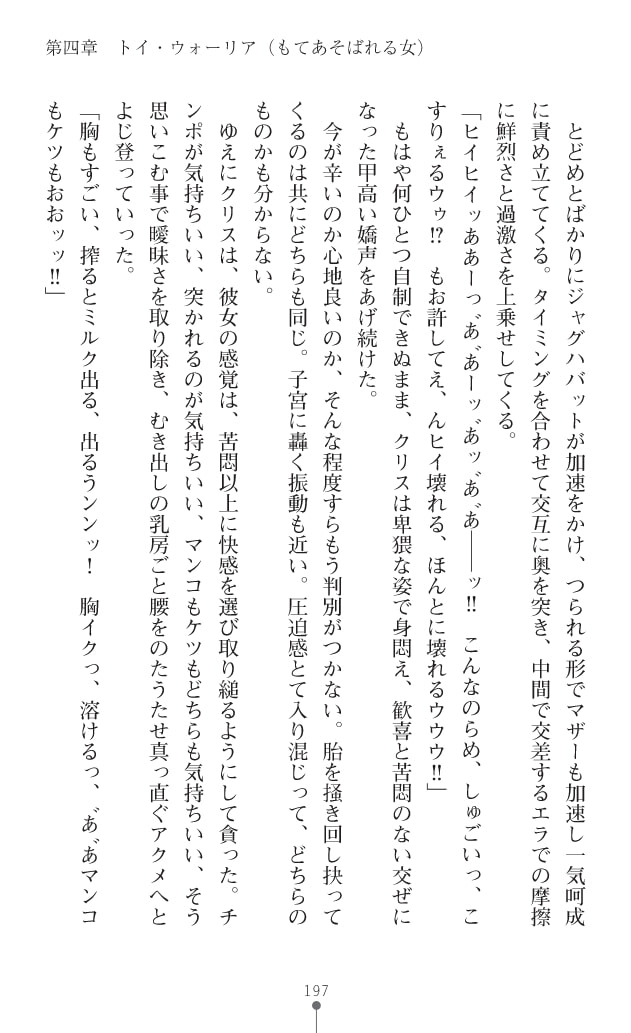 第四章　トイ・ウォーリア（もてあそばれる女）
とどめとばかりにジャグハバットが加速をかけ、つられる形でマザーも加速し一気呵成
に責め立ててくる。タイミングを合わせて交互に奥を突き、中間で交差するエラでの摩擦
に鮮烈さと過激さを上乗せしてくる。
「ヒイヒイッああーっ、あ゛、あ゛ーッ、あ゛ッ、あ゛、あ゛――ッ!!　こんなのらめ、しゅごいっ、こ
すりぇるウゥ!?　もお許してえ、んヒイ壊れる、ほんとに壊れるウウウ!!」
もはや何ひとつ自制できぬまま、クリスは卑猥な姿で身悶え、歓喜と苦悶のない交ぜに
なった甲高い嬌声をあげ続けた。
今が辛いのか心地良いのか、そんな程度すらもう判別がつかない。胎を掻き回し抉って
くるのは共にどちらも同じ。子宮に轟く振動も近い。圧迫感とて入り混じって、どちらの
ものかも分からない。
ゆえにクリスは、彼女の感覚は、苦悶以上に快感を選び取り縋るようにして貪った。チ
ンポが気持ちいい、突かれるのが気持ちいい、マンコもケツもどちらも気持ちいい、そう
思いこむ事で曖昧さを取り除き、むき出しの乳房ごと腰をのたうたせ真っ直ぐアクメへと
よじ登っていった。
「胸もすごい、搾るとミルク出る、出るうンンッ！　胸イクっ、溶けるっ、あ゛、あ゛マンコ
もケツもおおッッ!!」
197